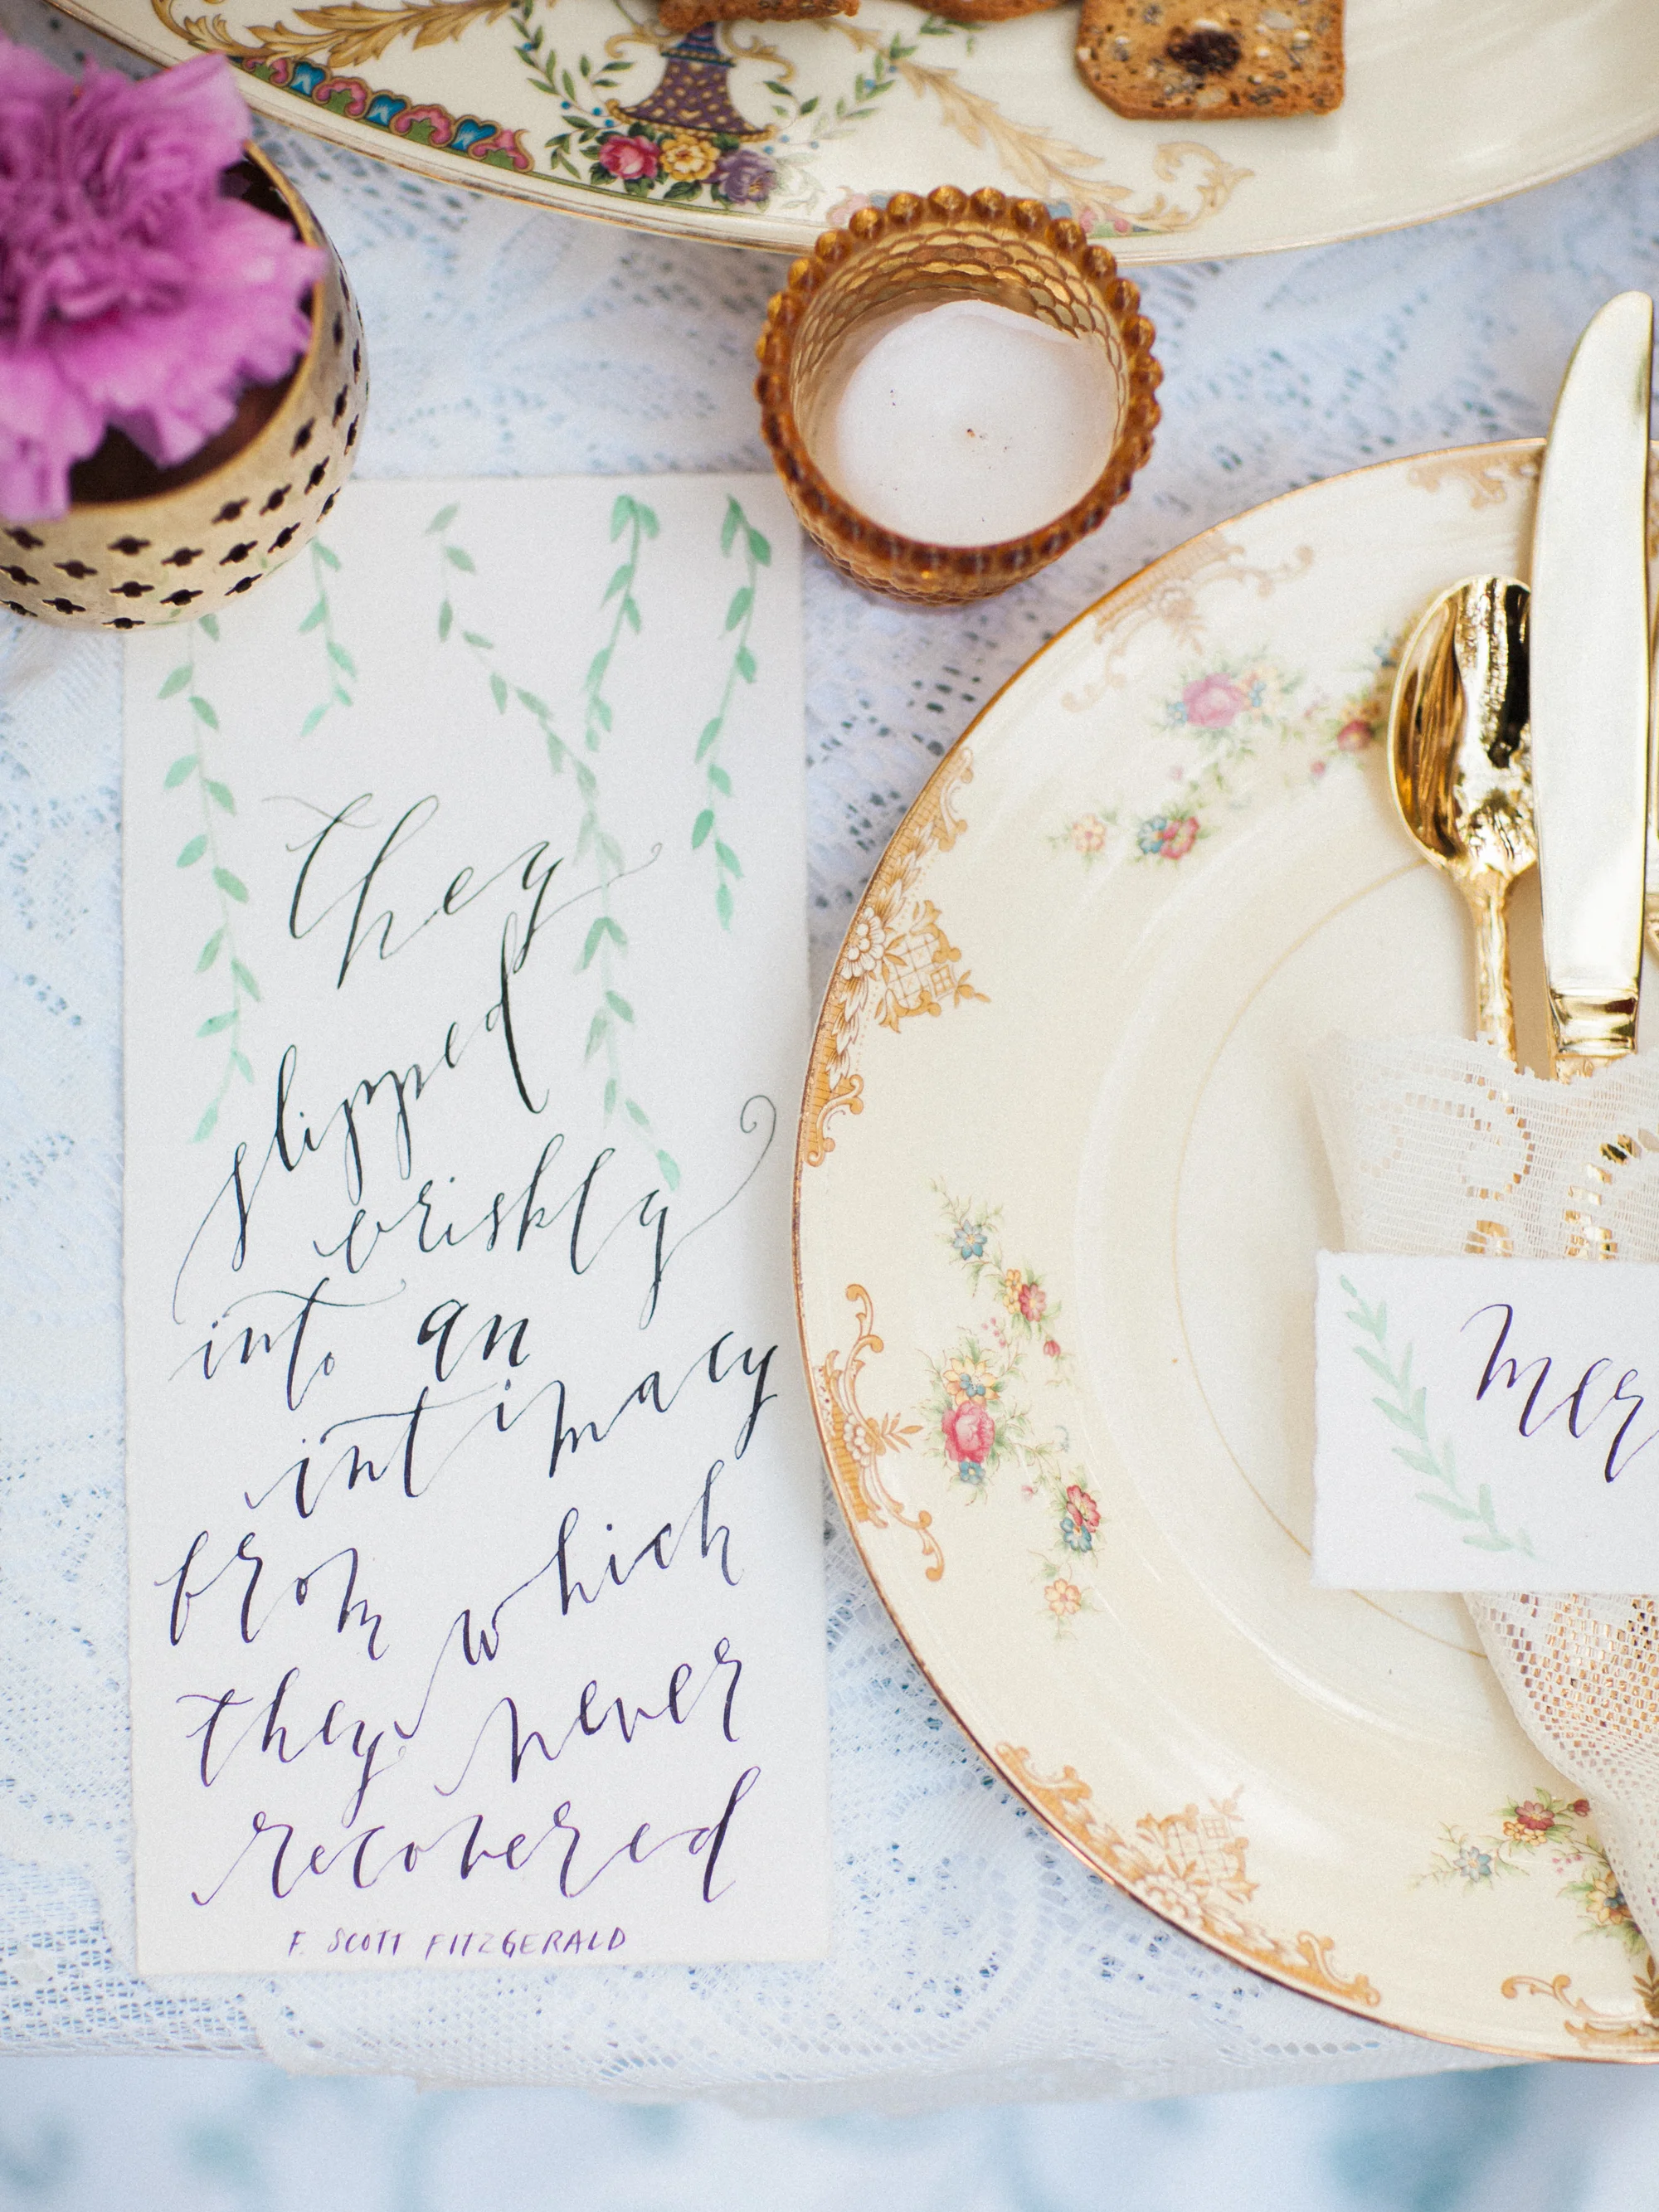 they
slipped
briskly
into an
intimacy
from which
they never
recovered
F. SCOTT FITZGERALD
mer